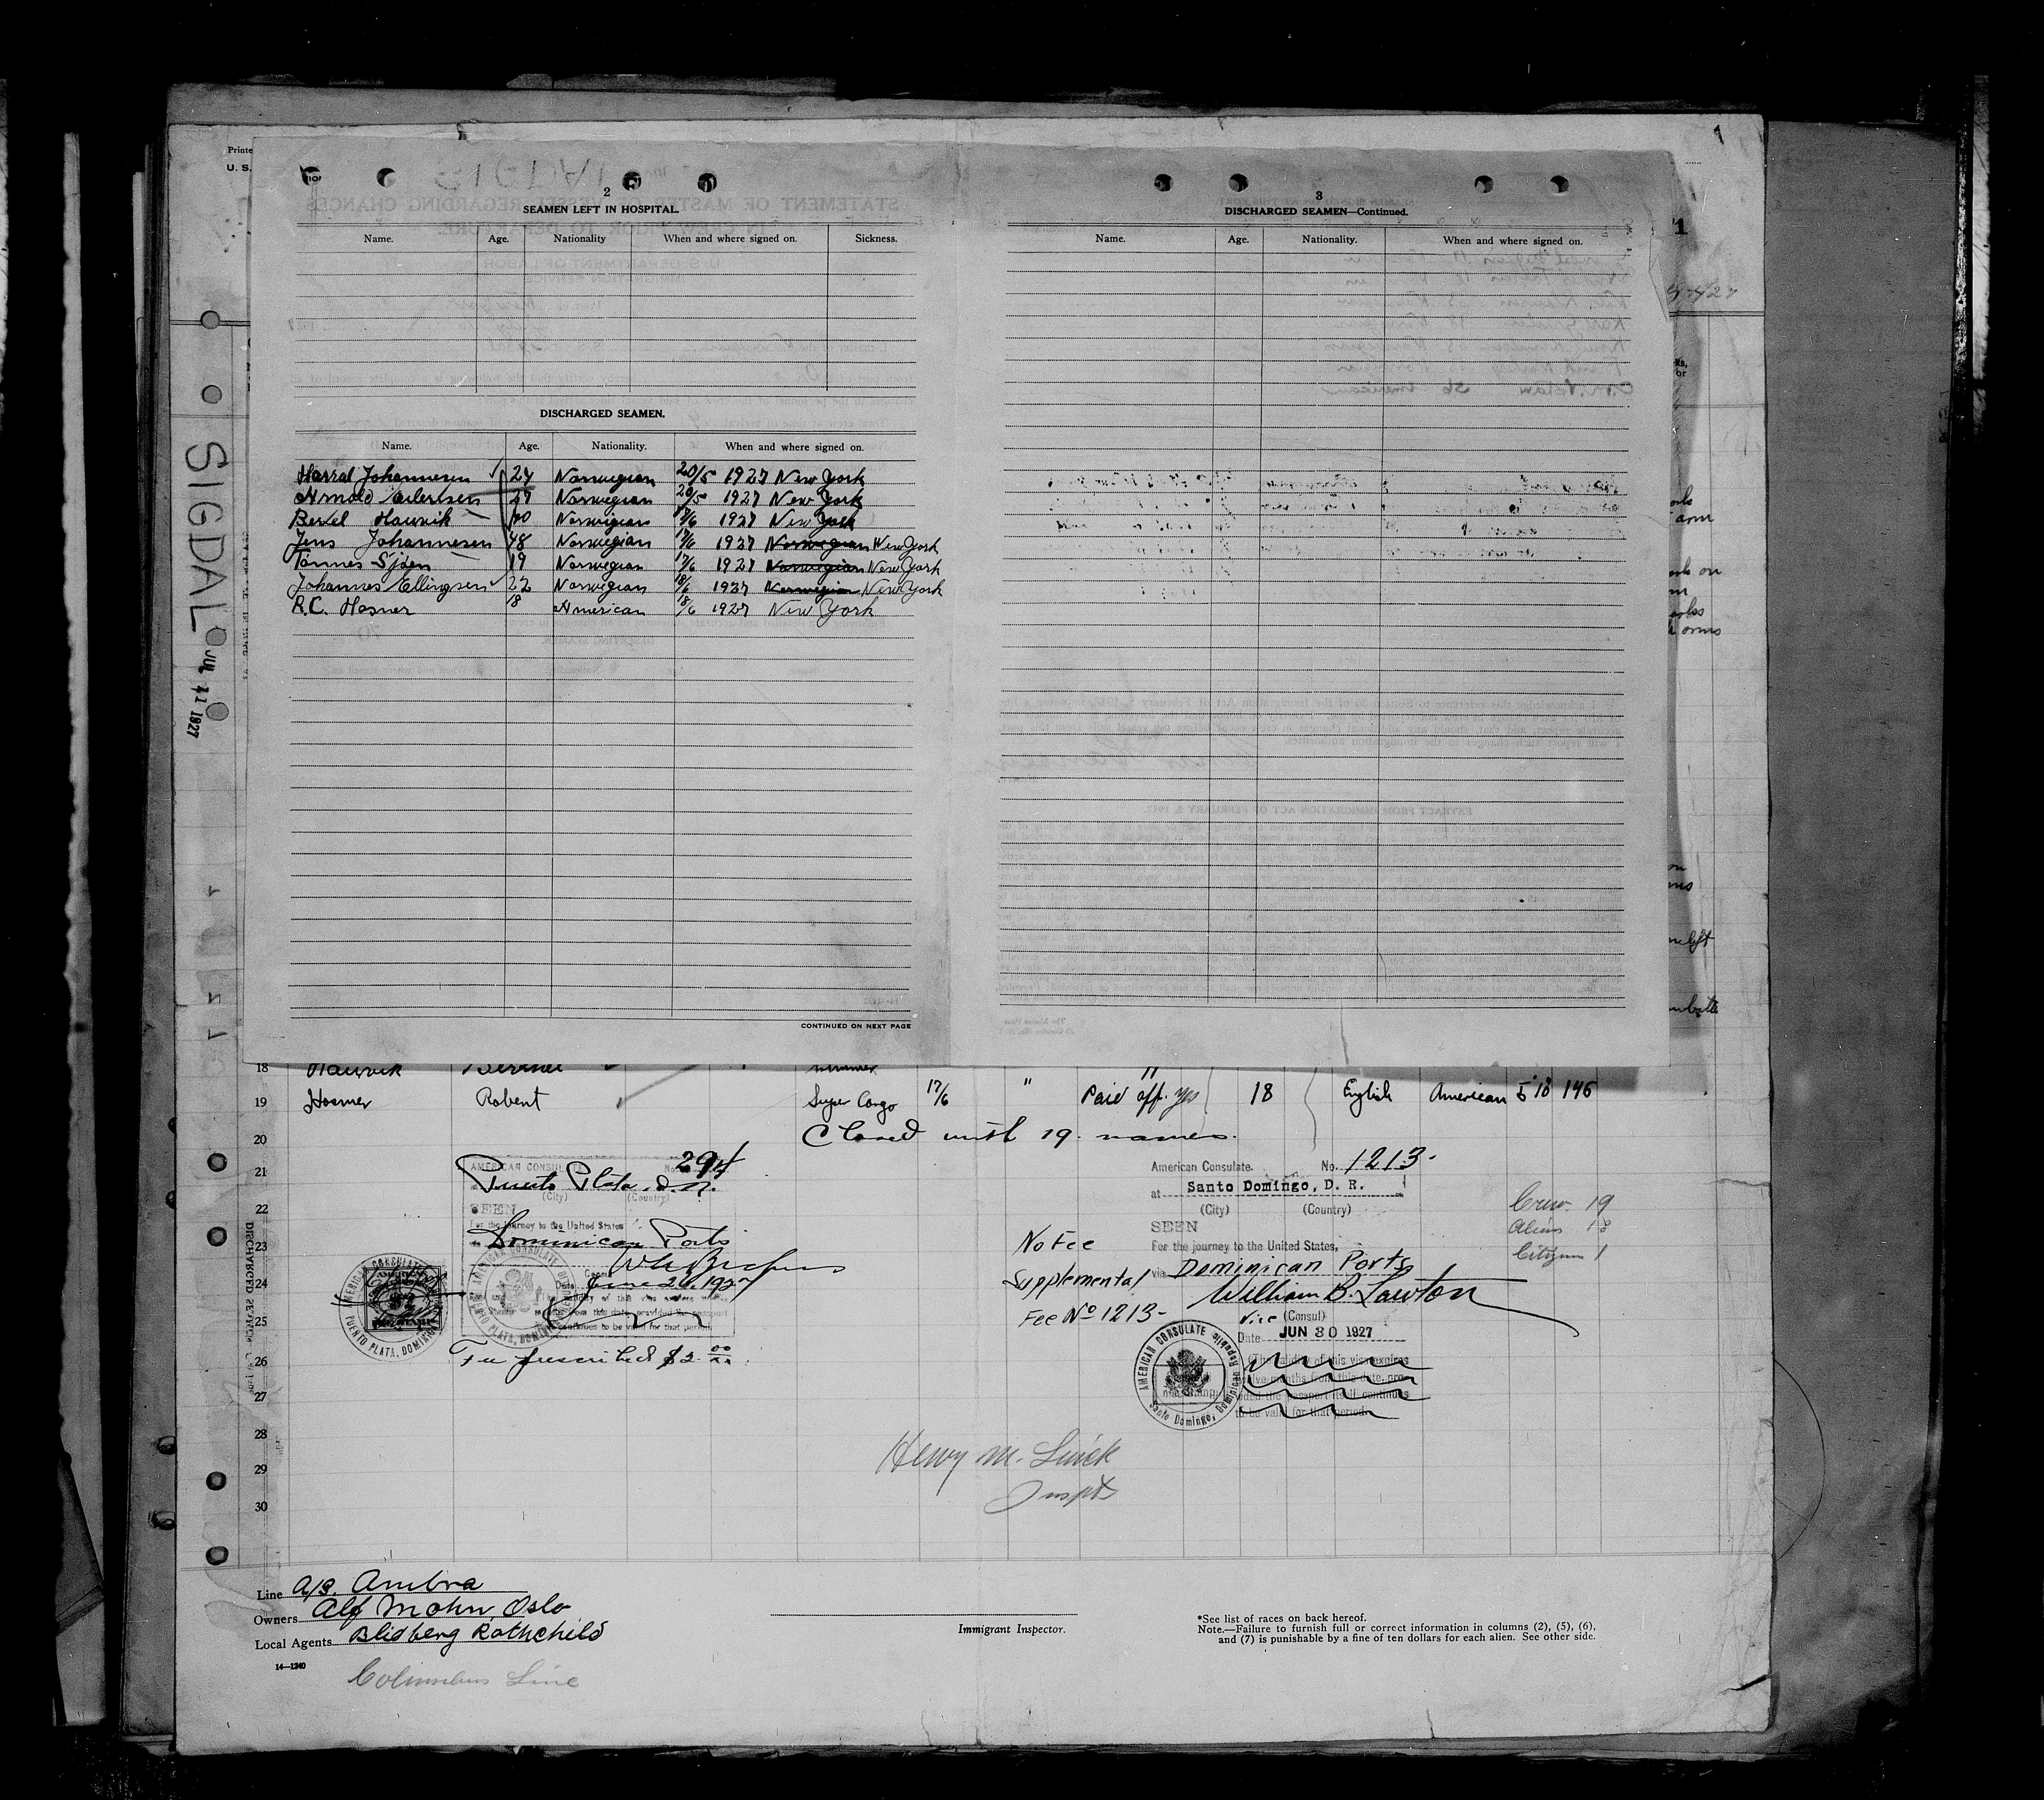 Printe
U. S.
2
SEAMEN LEFT IN HOSPITAL.
Name. Age. Nationality When and where signed on. Sickness.
DISCHARGED SEAMEN.
Name. Age. Nationality. When and where signed on.
Harral Johannesen 24 Norwegian 20/5 1927 New York
Arnold 27 Norwegian 20/5 1927 New York
Bertel Hauvik Norwegian 17/6 1927 New York
Jens Johannesen 48 Norwegian 17/6 1927 Norwegian New York
Tönnes Sjöen 19 Norwegian 17/6 1927 Norwegian New York
Johannes Ellingsen 22 Norwegian 18/6 1927 Norwegian New York
R.C. Hosner 18 American 18/6 1927 New York
CONTINUED ON NEXT PAGE
3
DISCHARGED SEAMEN—Continued.
Name. Age. Nationality. When and where signed on.
SIGDAL
JUL 11 1927
18 Hauvik
19 Hosmer Robert Super Cargo 17/6 " Paid off yes 18 English American 5 10 146
20 Closed with 19 names.
21
22
23
24
25
26
27
28
29
30
AMERICAN CONSULATE No. 294
Puerto Plata, D.R.
(City) (Country)
SEEN
For the journey to the United States
Dominican Ports
June 26, 1927
Fee prescribed $2.00
AMERICAN CONSULATE
PUERTO PLATA, DOMINICAN
American Consulate. No. 1213-
at Santo Domingo, D. R.
(City) (Country)
SEEN
For the journey to the United States,
via Dominican Ports
William B. Lawton
Vice (Consul)
Date JUN 30 1927
(The validity of this visa expires
twelve months from this date, pro-
vided the passport itself continues
to be valid for that period.
AMERICAN CONSULATE
Santo Domingo, Dominican Republic
No Fee
Supplemental
Fee Nº 1213-
Crew 19
Aliens 18
Citizen 1
Henry M. Linck
Inspt
Line A/S. Ambra
Owners Alf Mohn, Oslo
Local Agents Blidberg Rothchild
14—1240
Columbus Line
Immigrant Inspector.
*See list of races on back hereof.
Note.—Failure to furnish full or correct information in columns (2), (5), (6),
and (7) is punishable by a fine of ten dollars for each alien. See other side.